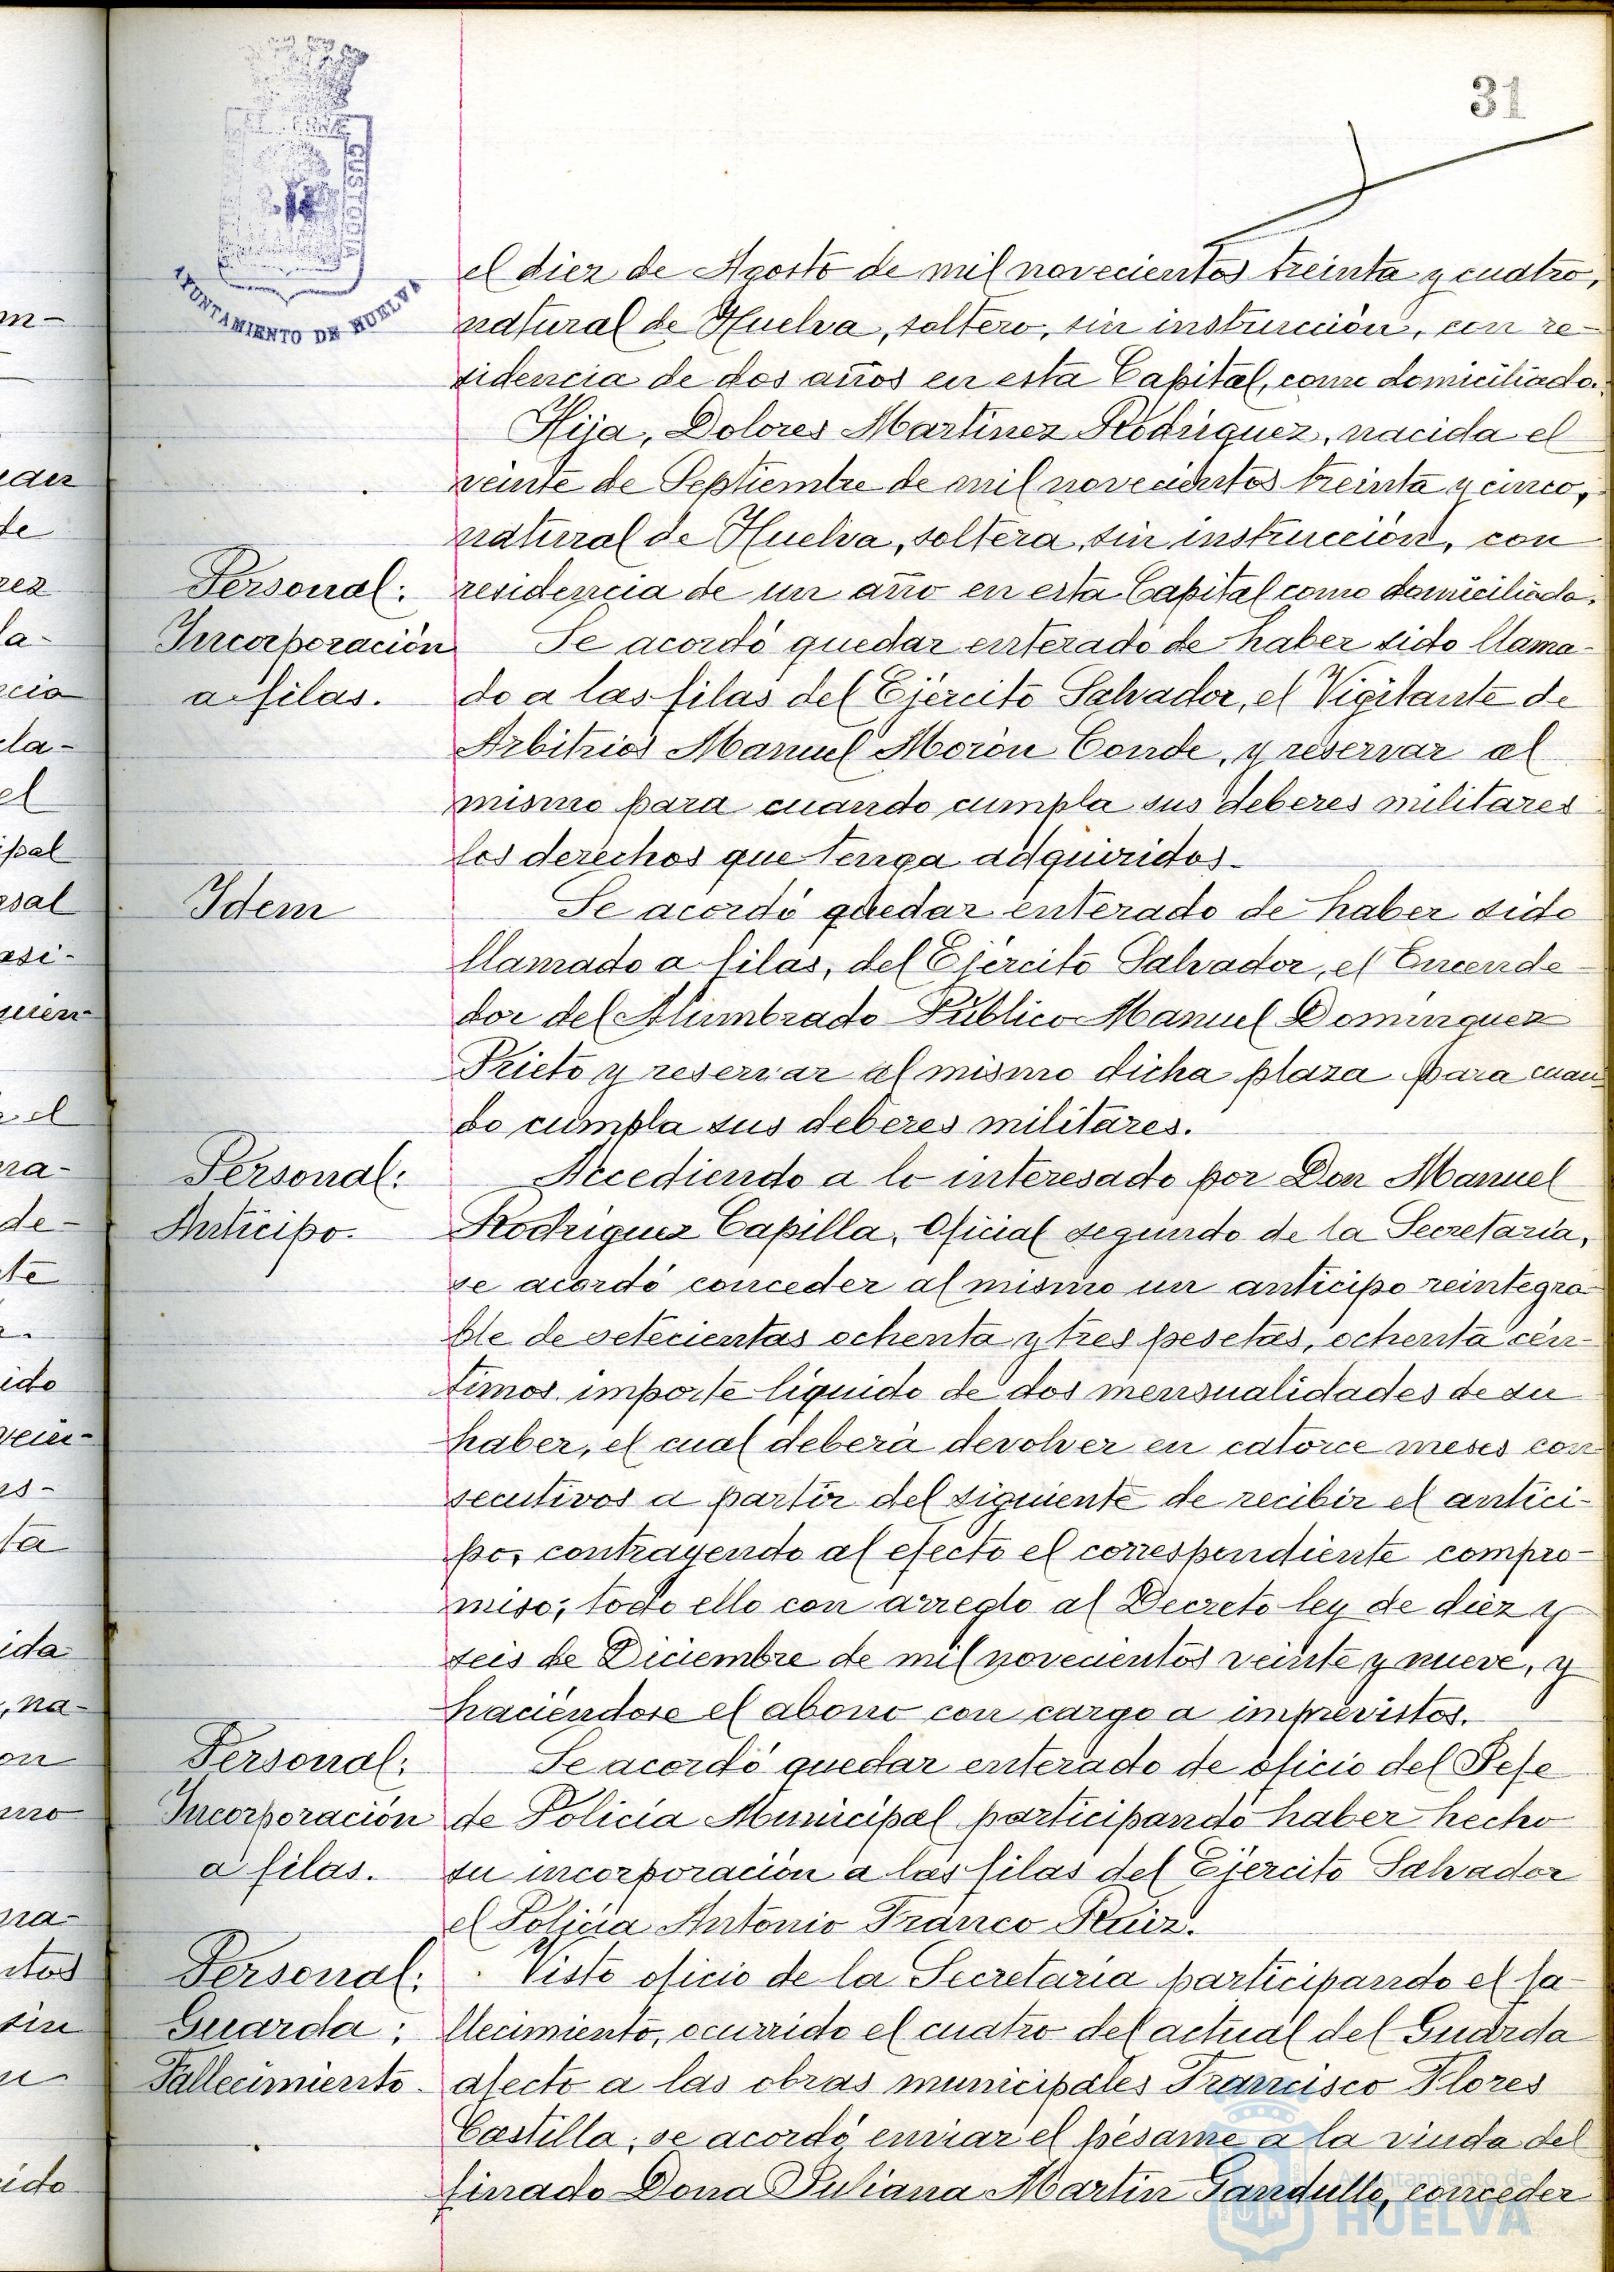 31
CUSTODIA
AYUNTAMIENTO DE HUELVA
el diez de Agosto de mil novecientos treinta y cuatro,
natural de Huelva, soltero, sin instrucción, con re-
sidencia de dos años en esta Capital, como domiciliado.
Hija, Dolores Martinez Rodriguez, nacida el
veinte de Septiembre de mil novecientos treinta y cinco,
natural de Huelva, soltera, sin instrucción, con
residencia de un año en esta Capital como domiciliada.
Personal:
Incorporación
a filas.
Se acordó quedar enterado de haber sido llama-
do a las filas del Ejército Salvador, el Vigilante de
Arbitrios Manuel Morón Conde, y reservar al
mismo para cuando cumpla sus deberes militares
los derechos que tenga adquiridos.
Idem
Se acordó quedar enterado de haber sido
llamado a filas, del Ejército Salvador, el Encende-
dor del Alumbrado Público Manuel Dominguez
Prieto y reservar al mismo dicha plaza para cuan
do cumpla sus deberes militares.
Personal:
Anticipo.
Accediendo a lo interesado por Don Manuel
Rodriguez Capilla, Oficial segundo de la Secretaría,
se acordó conceder al mismo un anticipo reintegra
ble de setecientas ochenta y tres pesetas, ochenta cén-
timos importe líquido de dos mensualidades de su
haber, el cual deberá devolver en catorce meses con
secutivos a partir del siguiente de recibir el antici-
po, contrayendo al efecto el correspondiente compro-
miso; todo ello con arreglo al Decreto ley de diez y
seis de Diciembre de mil novecientos veinte y nueve, y
haciéndose el abono con cargo a imprevistos.
Personal:
Incorporación
a filas.
Se acordó quedar enterado de oficio del Jefe
de Policía Municipal participando haber hecho
su incorporación a las filas del Ejército Salvador
el Policía Antonio Franco Ruiz.
Personal:
Guarda:
Fallecimiento.
Visto oficio de la Secretaría participando el fa-
llecimiento, ocurrido el cuatro del actual del Guarda
afecto a las obras municipales Francisco Flores
Castilla; se acordó enviar el pésame a la viuda del
finado Dona Juliana Martin Gandullo, conceder
Ayuntamiento de
HUELVA